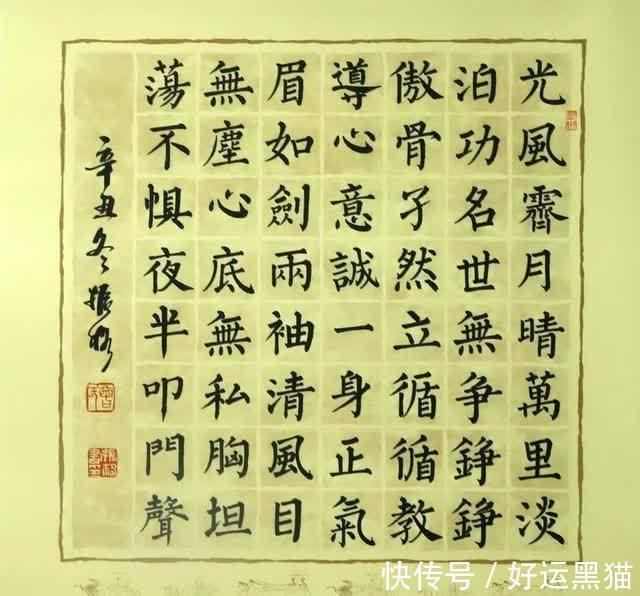 光風霽月晴萬里淡
泊功名世無争錚錚
傲骨孑然立循循教
導心意誠一身正氣
眉如劍兩袖清風目
無塵心底無私胸坦
蕩不惧夜半叩門聲
辛丑冬振格
快传号/好运黑猫